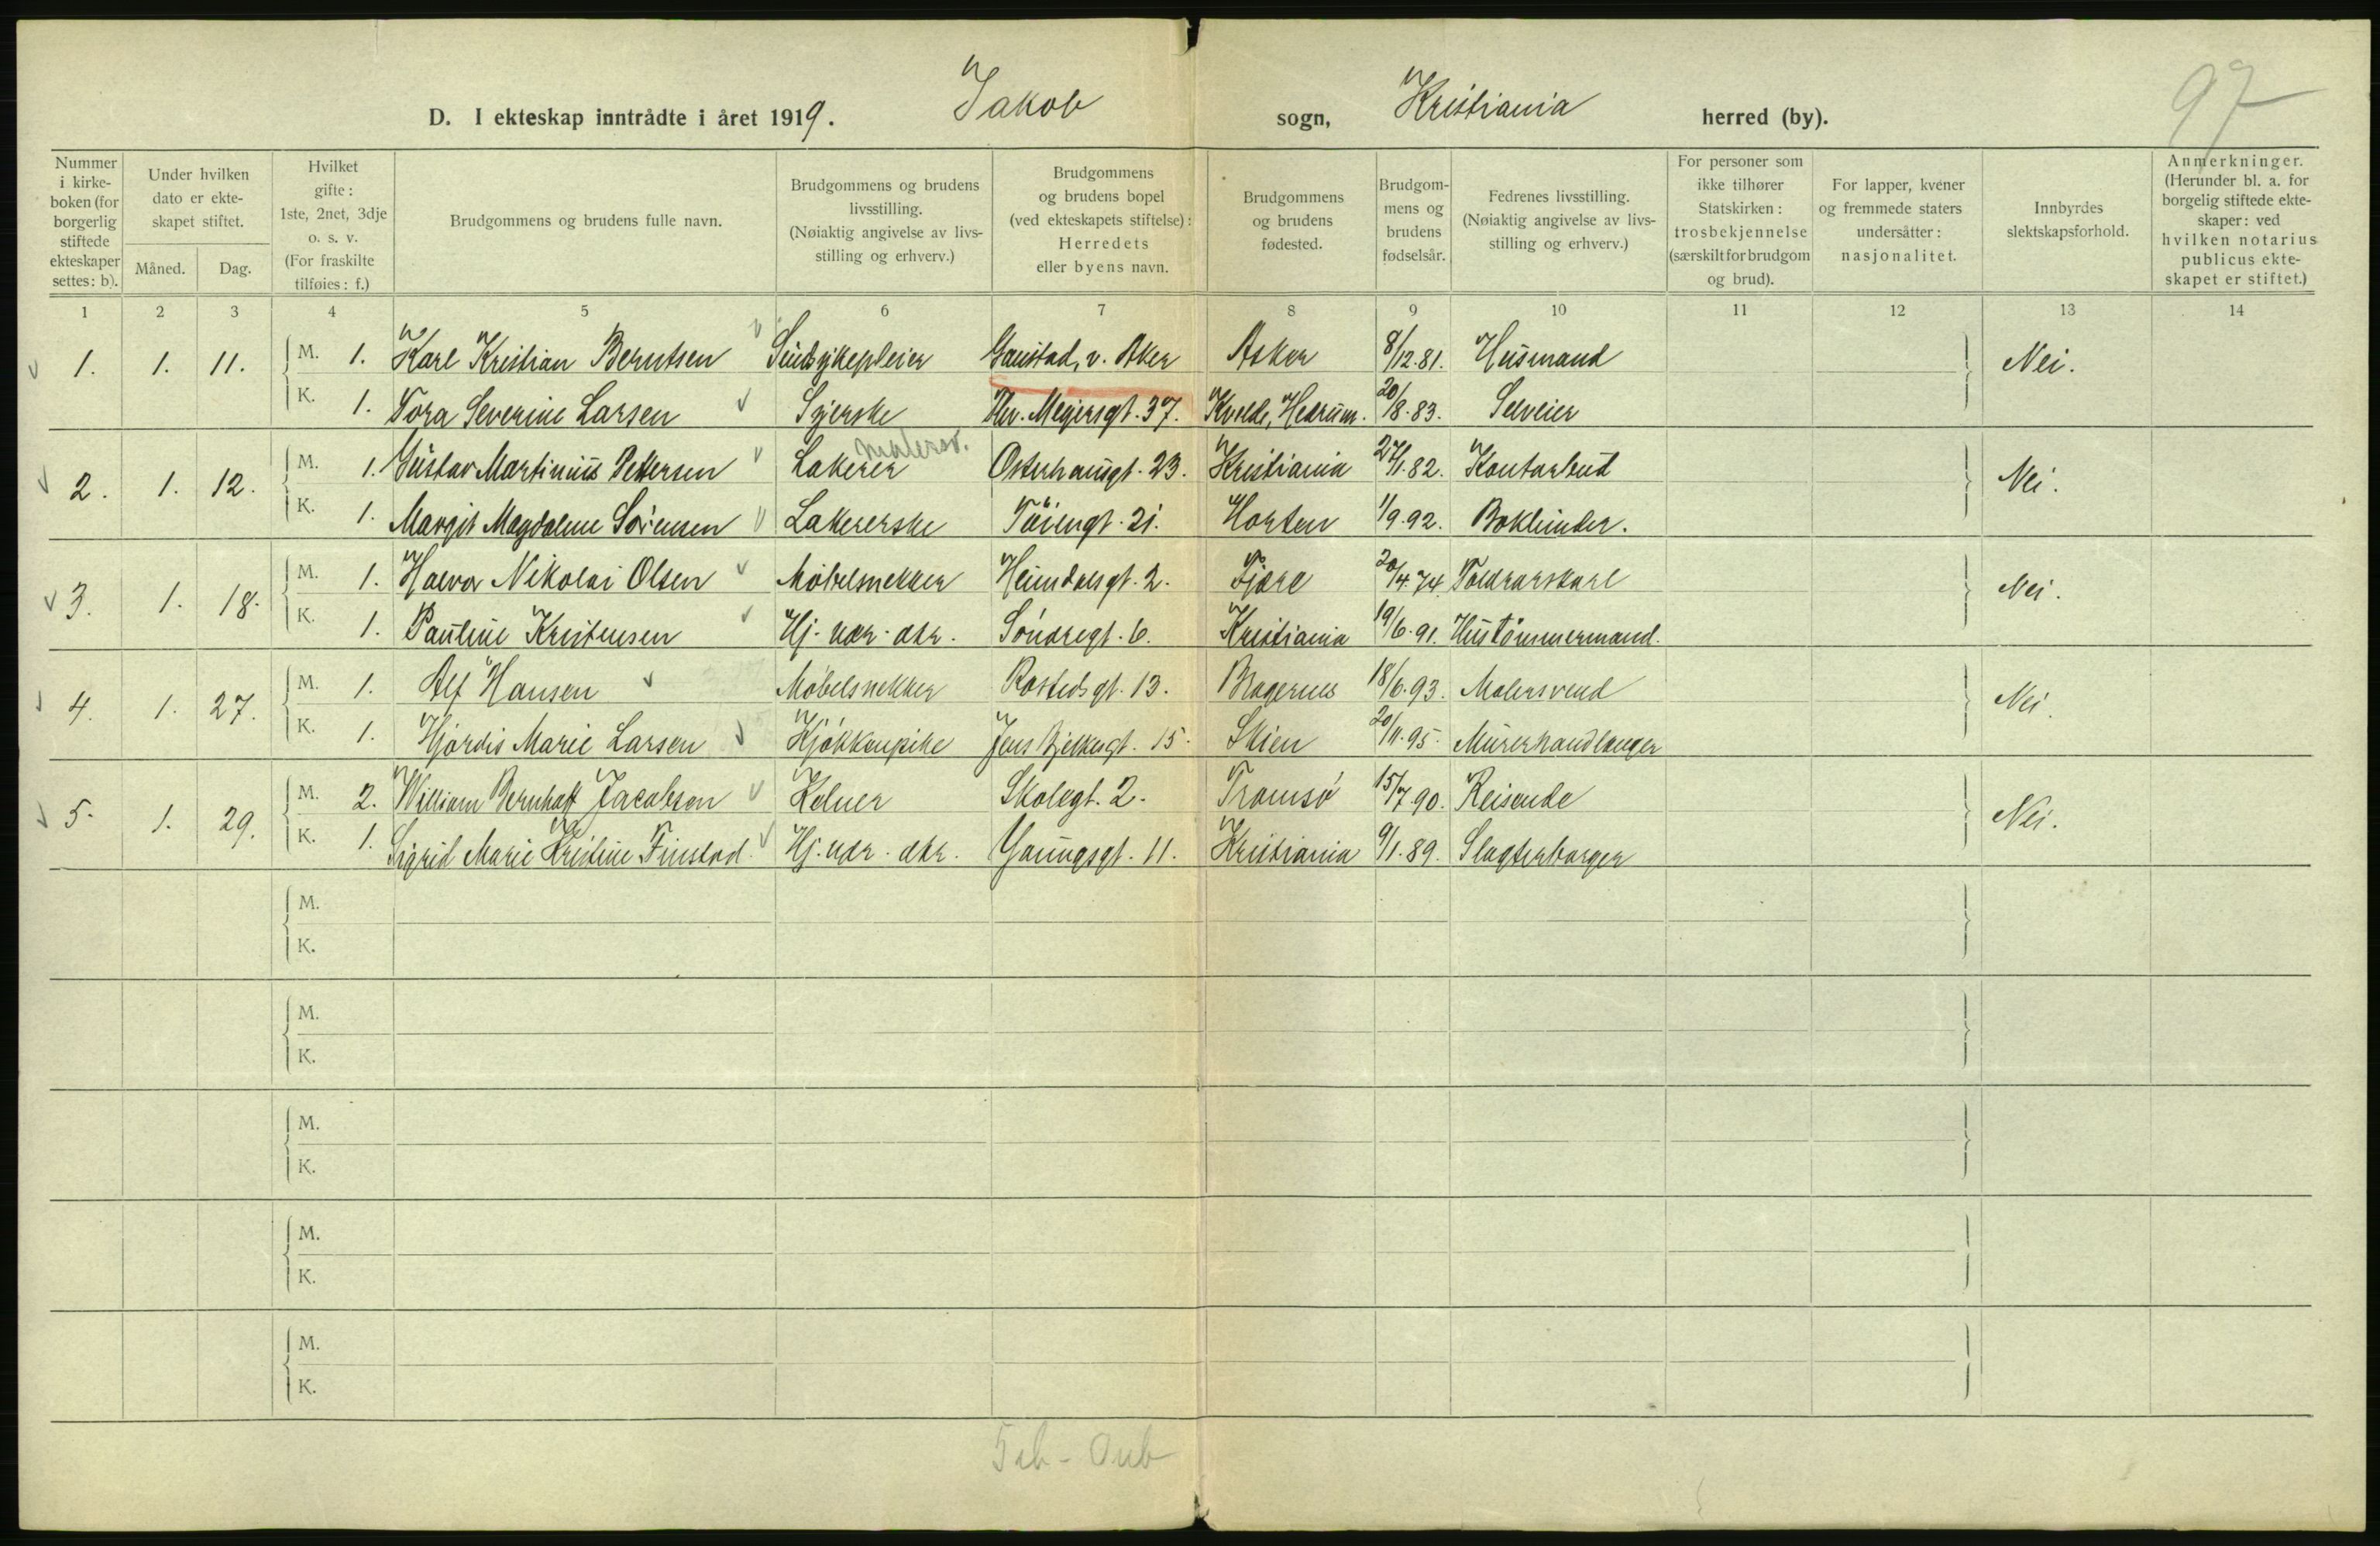 97
D. I ekteskap inntrådte i året 1919. Jakob sogn, Kristiania herred (by).
Nummer i kirkeboken (for borgerlig stiftede ekteskaper settes: b).
Under hvilken dato er ekteskapet stiftet.
Måned. Dag.
Hvilket gifte: 1ste, 2net, 3dje o. s. v. (For fraskilte tilføies: f.)
Brudgommens og brudens fulle navn.
Brudgommens og brudens livsstilling. (Nøiaktig angivelse av livsstilling og erhverv.)
Brudgommens og brudens bopel (ved ekteskapets stiftelse): Herredets eller byens navn.
Brudgommens og brudens fødested.
Brudgommens og brudens fødselsår.
Fedrenes livsstilling. (Nøiaktig angivelse av livsstilling og erhverv.)
For personer som ikke tilhører Statskirken: trosbekjennelse (særskilt for brudgom og brud).
For lapper, kvener og fremmede staters undersåtter: nasjonalitet.
Innbyrdes slektskapsforhold.
Anmerkninger. (Herunder bl. a. for borgelig stiftede ekteskaper: ved hvilken notarius publicus ekteskapet er stiftet.)
1 2 3 4 5 6 7 8 9 10 11 12 13 14
1. 1. 11. M. 1. Karl Kristian Berntsen Sindsykepleier Gaustad, v. Aker Asker 8/12.81. Husmand Nei.
K. 1. Tora Severine Larsen Syerske Thv. Meyersgt. 37. Kvelde, Hedrum. 20/8.83. Selveier
malersv.
2. 1. 12. M. 1. Gustav Martinius Pettersen Lakerer Osterhausgt. 23. Kristiania 27/1.82. Kontorbud Nei.
K. 1. Margit Magdalene Sørensen Lakererske Tøiengt. 21. Horten 1/9.92. Bokbinder.
3. 1. 18. M. 1. Halvor Nikolai Olsen Møbelsnekker Heimdalsgt. 2. Fjære 20/4.74. Nei.
K. 1. Pauline Kristensen Hj. vær. dtr. Søndregt. 6. Kristiania 19/6.91. Hustømmermand.
4. 1. 27. M. 1. Alf Hansen Møbelsnekker Rostedsgt. 13. Bragernes 18/6.93. Malersvend Nei.
K. 1. Hjørdis Marie Larsen Kjøkkenpike Jens Bjelkesgt. 15. Skien 20/11.95. Murerhandlanger
5. 1. 29. M. 2. William Bernhoft Jacobsen Kelner Skolegt. 2. Tromsø 15/7.90. Reisende Nei.
K. 1. Sigrid Marie Kristine Finstad Hj. vær. dtr. Youngsgt. 11. Kristiania 9/1.89. Slagterborger
M.
K.
M.
K.
M.
K.
M.
K.
M.
K.